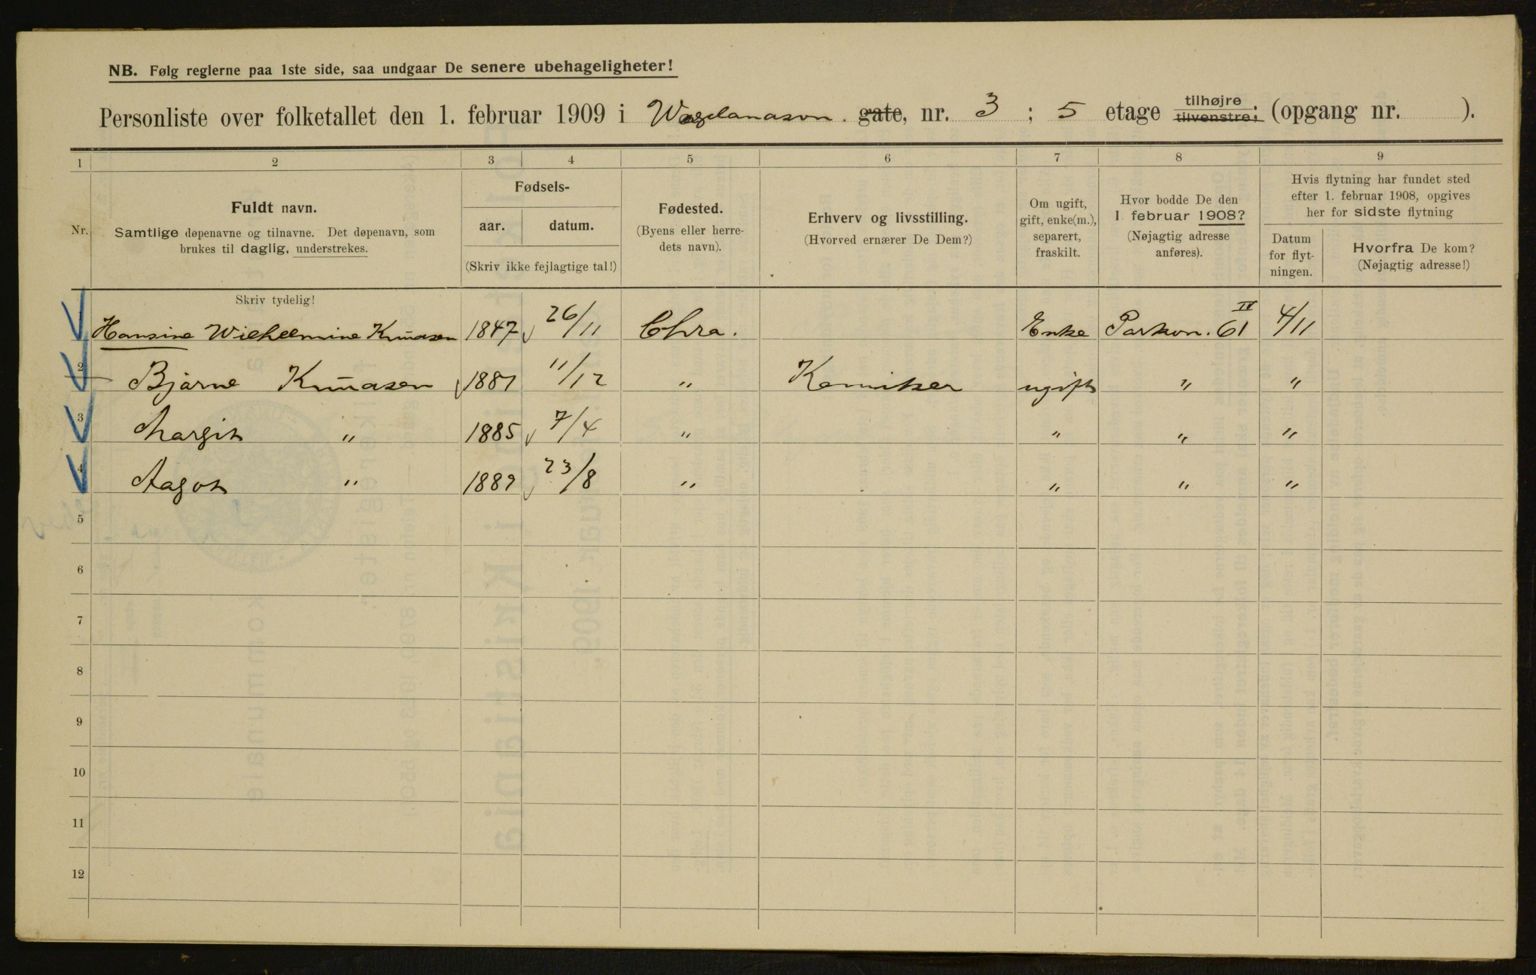 NB. Følg reglerne paa 1ste side, saa undgaar De senere ubehageligheter!
Personliste over folketallet den 1. februar 1909 i gate, nr. 3 ; 5 etage tilhøjre tilvenstre; (opgang nr. ).
1 2 3 4 5 6 7 8 9
Nr.
Fuldt navn.
Samtlige døpenavne og tilnavne. Det døpenavn, som
brukes til daglig, understrekes.
Fødsels-
aar. datum.
(Skriv ikke fejlagtige tal!)
Fødested.
(Byens eller herre-
dets navn).
Erhverv og livsstilling.
(Hvorved ernærer De Dem?)
Om ugift,
gift, enke(m.),
separert,
fraskilt.
Hvor bodde De den
1 februar 1908?
(Nøjagtig adresse
anføres).
Hvis flytning har fundet sted
efter 1. februar 1908, opgives
her for sidste flytning
Datum
for flyt-
ningen.
Hvorfra De kom?
(Nøjagtig adresse!)
Skriv tydelig!
Hansine Wilhelmine Knudsen 1847 26/11 Chra. Enke Parkvn. 61 IV 4/11
2 Bjarne Knudsen 1881 11/12 " Kemiker ugift " "
3 Margit " 1885 7/4 " " " "
4 Aagot " 1889 23/8 " " " "
5
6
7
8
9
10
11
12